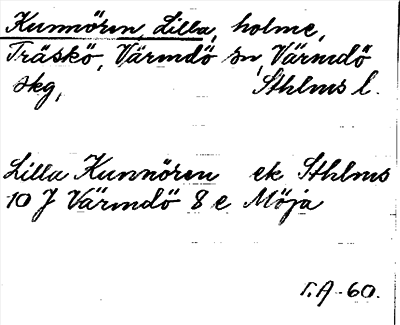 Kunnören, Lilla, holme,
Träskö, Värmdö sn, Värmdö
skg, Sthlms l.
Lilla Kunnören ek Sthlms
10 J Värmdö 8 e Möja
T.A-60.